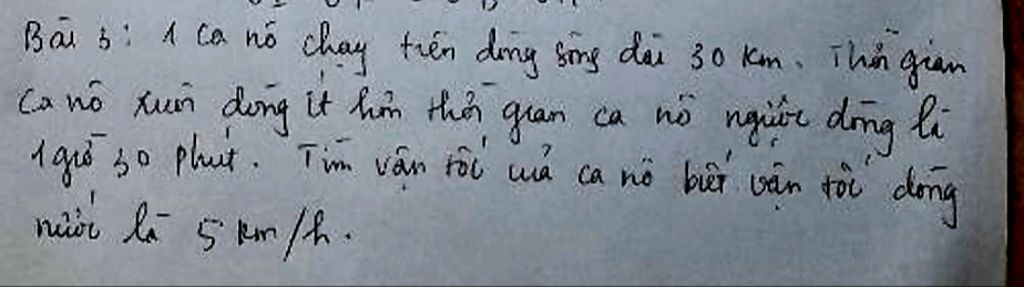 Bài 3: 1 ca nô chạy trên dòng sông dài 30 km. Thời gian
ca nô xuôi dòng ít hơn thời gian ca nô ngược dòng là
1 giờ 30 phút. Tìm vận tốc của ca nô biết vận tốc dòng
nước là 5 km/h.